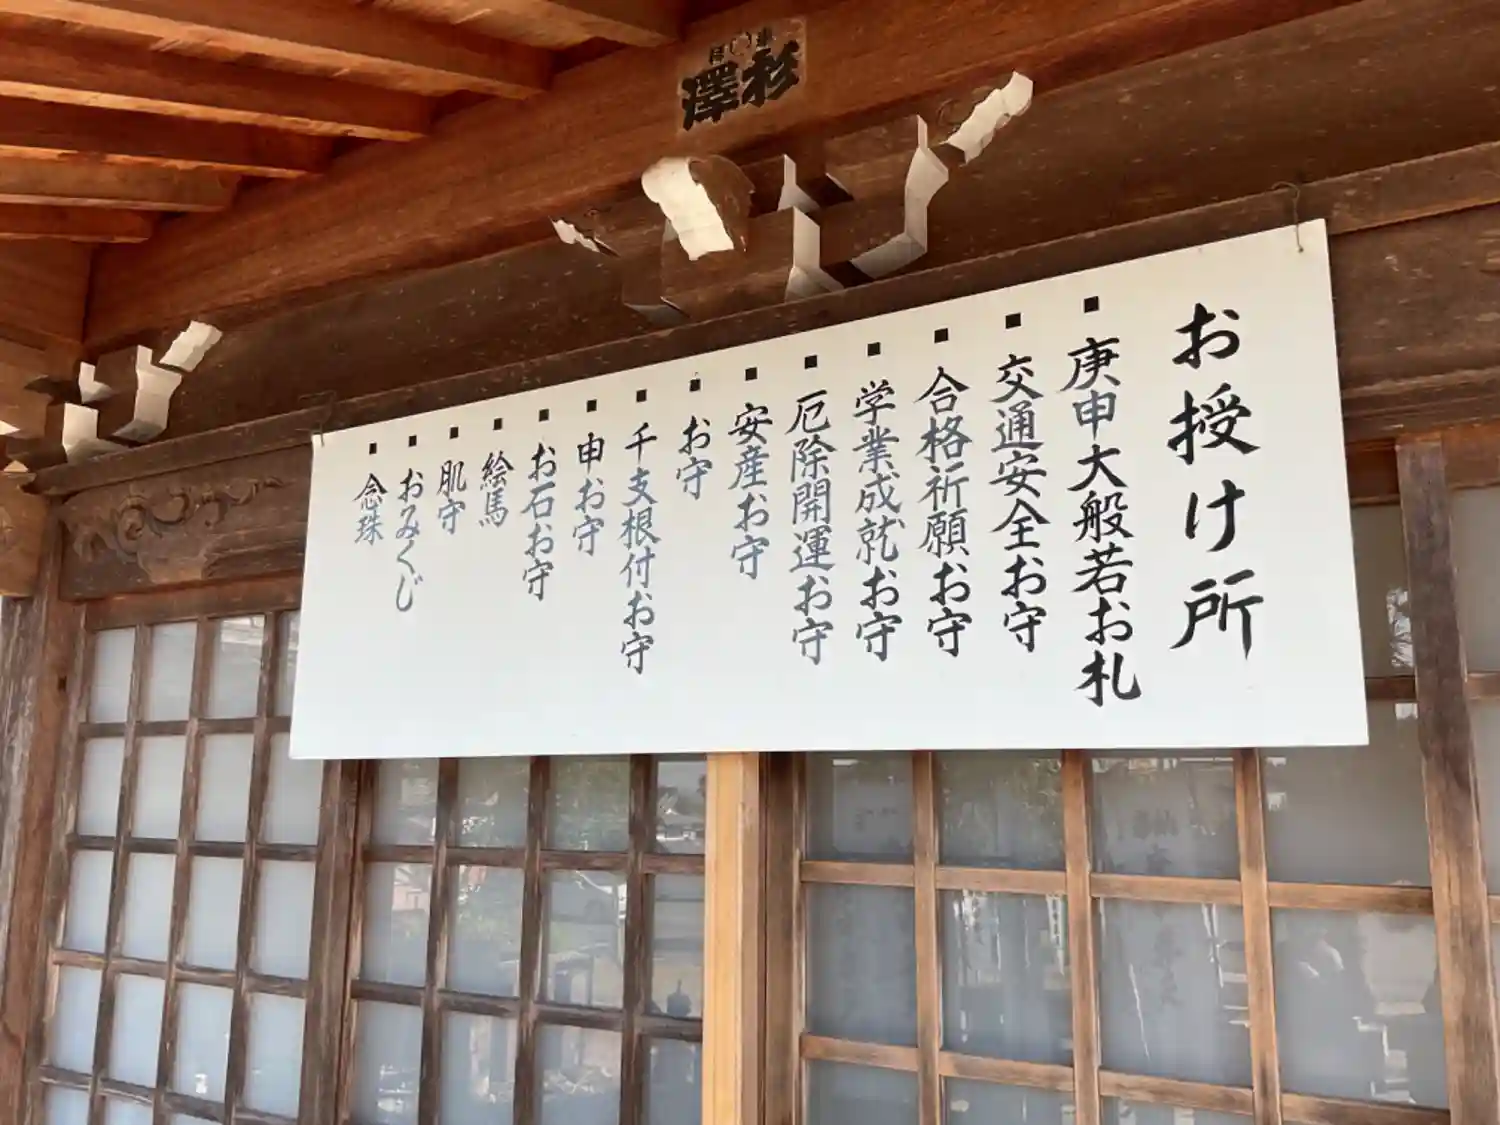 杉澤
お授け所
■庚申大般若お札
■交通安全お守
■合格祈願お守
■学業成就お守
■厄除開運お守
■安産お守
■お守
■千支根付お守
■申お守
■お石お守
■絵馬
■肌守
■おみくじ
■念珠